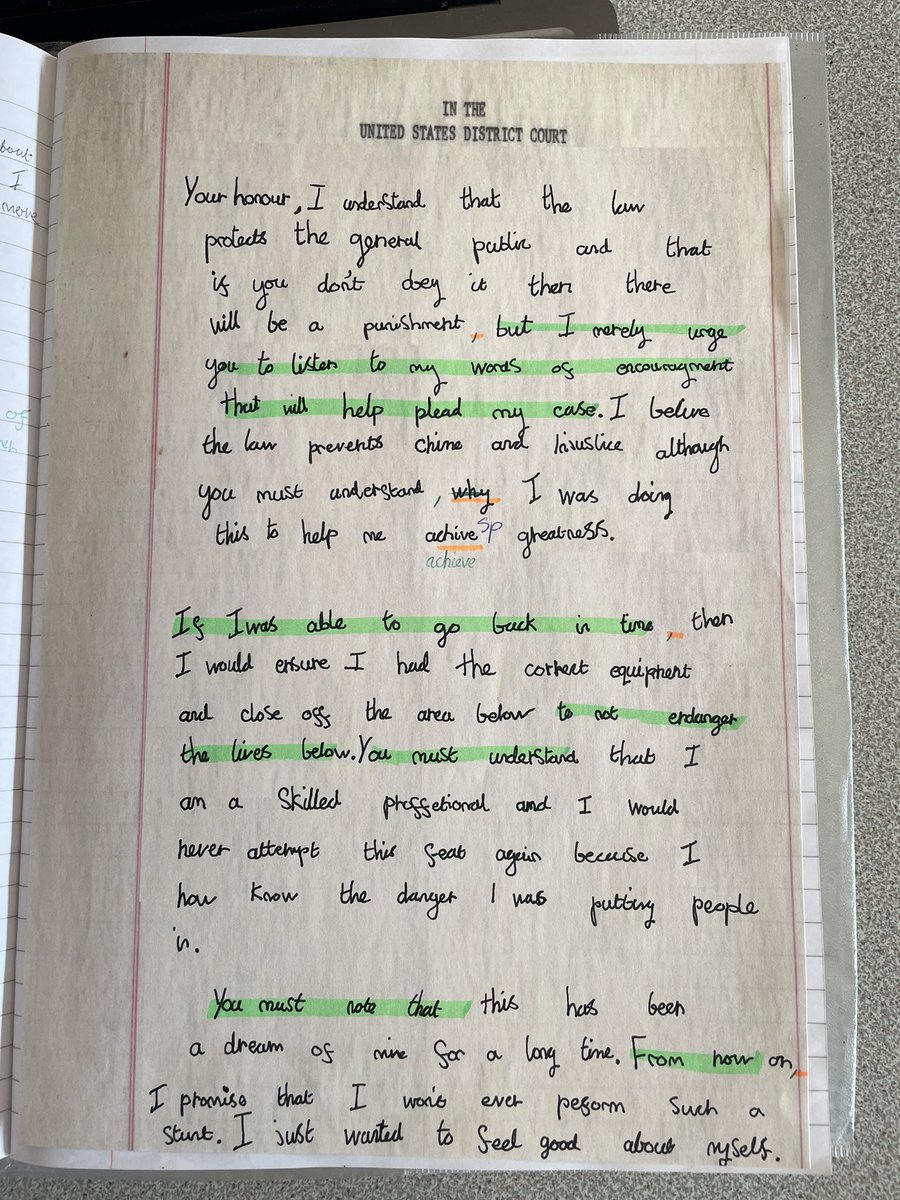 IN THE
UNITED STATES DISTRICT COURT
Your honour, I understand that the law
protects the general public and that
if you don't obey it then there
will be a punishment, but I merely urge
you to listen to my words of encouragment
that will help plead my case. I belive
the law prevents crime and injustice although
you must understand, why I was doing
this to help me achive sp greatness.
achieve
If I was able to go back in time, then
I would ensure I had the correct equipment
and close off the area below to not endanger
the lives below. You must understand that I
am a skilled proffetional and I would
never attempt this feat again because I
now know the danger I was putting people
in.
You must note that this has been
a dream of mine for a long time. From now on,
I promise that I won't ever peform such a
stunt. I just wanted to feel good about myself.
bout
I
move
of